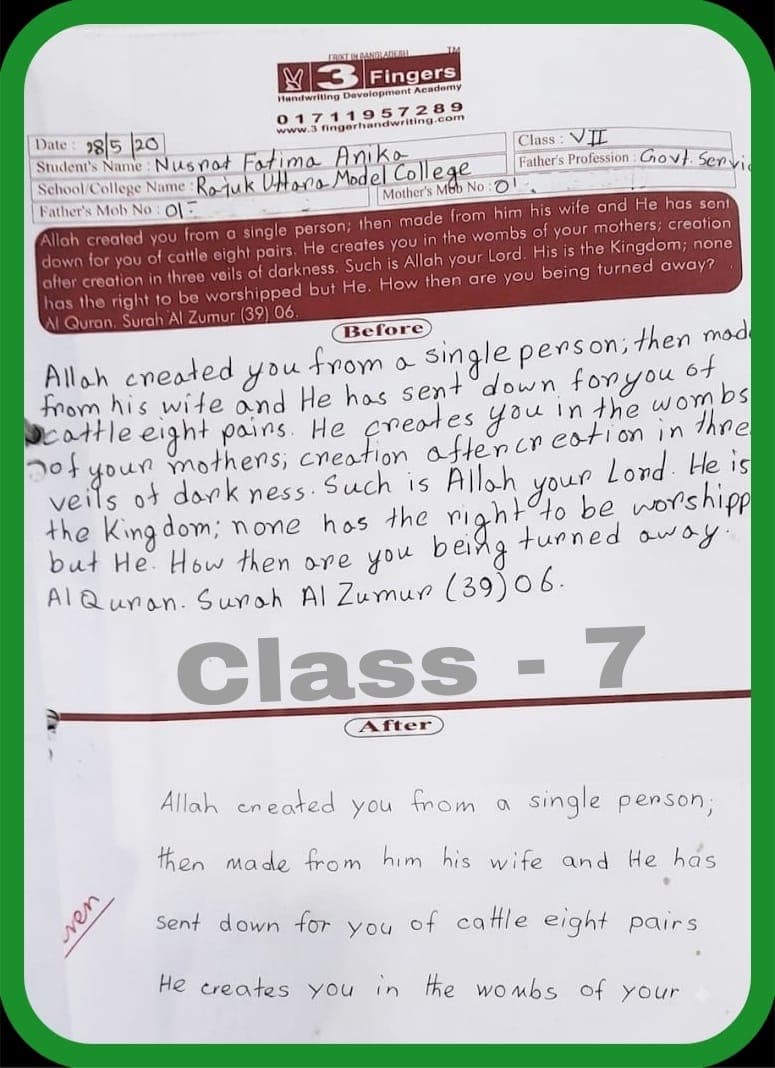 PRINT IN BANGLADESH TM
3 Fingers
Handwriting Development Academy
01711957289
www.3 fingerhandwriting.com
Date : 28/5/20
Class : VII
Student's Name : Nusrat Fatima Anika
Father's Profession : Govt. Servic
School/College Name : Rajuk Uttara Model College
Father's Mob No : 01-
Mother's Mob No : 01
Allah created you from a single person; then made from him his wife and He has sent
down for you of cattle eight pairs. He creates you in the wombs of your mothers; creation
after creation in three veils of darkness. Such is Allah your Lord. His is the Kingdom; none
has the right to be worshipped but He. How then are you being turned away?
Al Quran. Surah Al Zumur (39) 06.
Before
Allah created you from a single person; then made
from his wife and He has sent down for you of
cattle eight pairs. He creates you in the wombs
of your mothers; creation after creation in thre
veils of dark ness. Such is Allah your Lord. He is
the King dom; none has the right to be worshipp
but He. How then are you being turned away.
Al Quran. Surah Al Zumur (39) 06.
Class - 7
After
Allah created you from a single person;
then made from him his wife and He has
sent down for you of cattle eight pairs
He creates you in the wombs of your